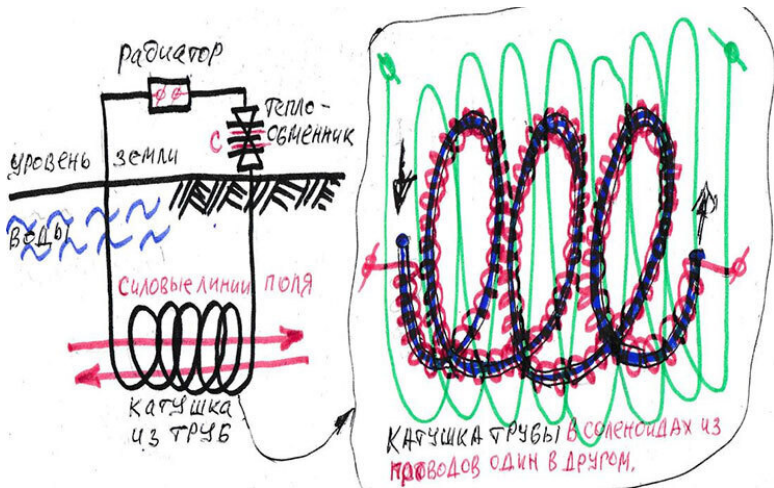 радиатор
ТЕПЛО-
ОБМЕННИК
С
УРОВЕНЬ ЗЕМЛИ
ВОДЫ
СИЛОВЫЕ ЛИНИИ ПОЛЯ
КАТУШКА
ИЗ ТРУБ
КАТУШКА ТРУБЫ В СОЛЕНОИДАХ ИЗ
ПРОВОДОВ ОДИН В ДРУГОМ.